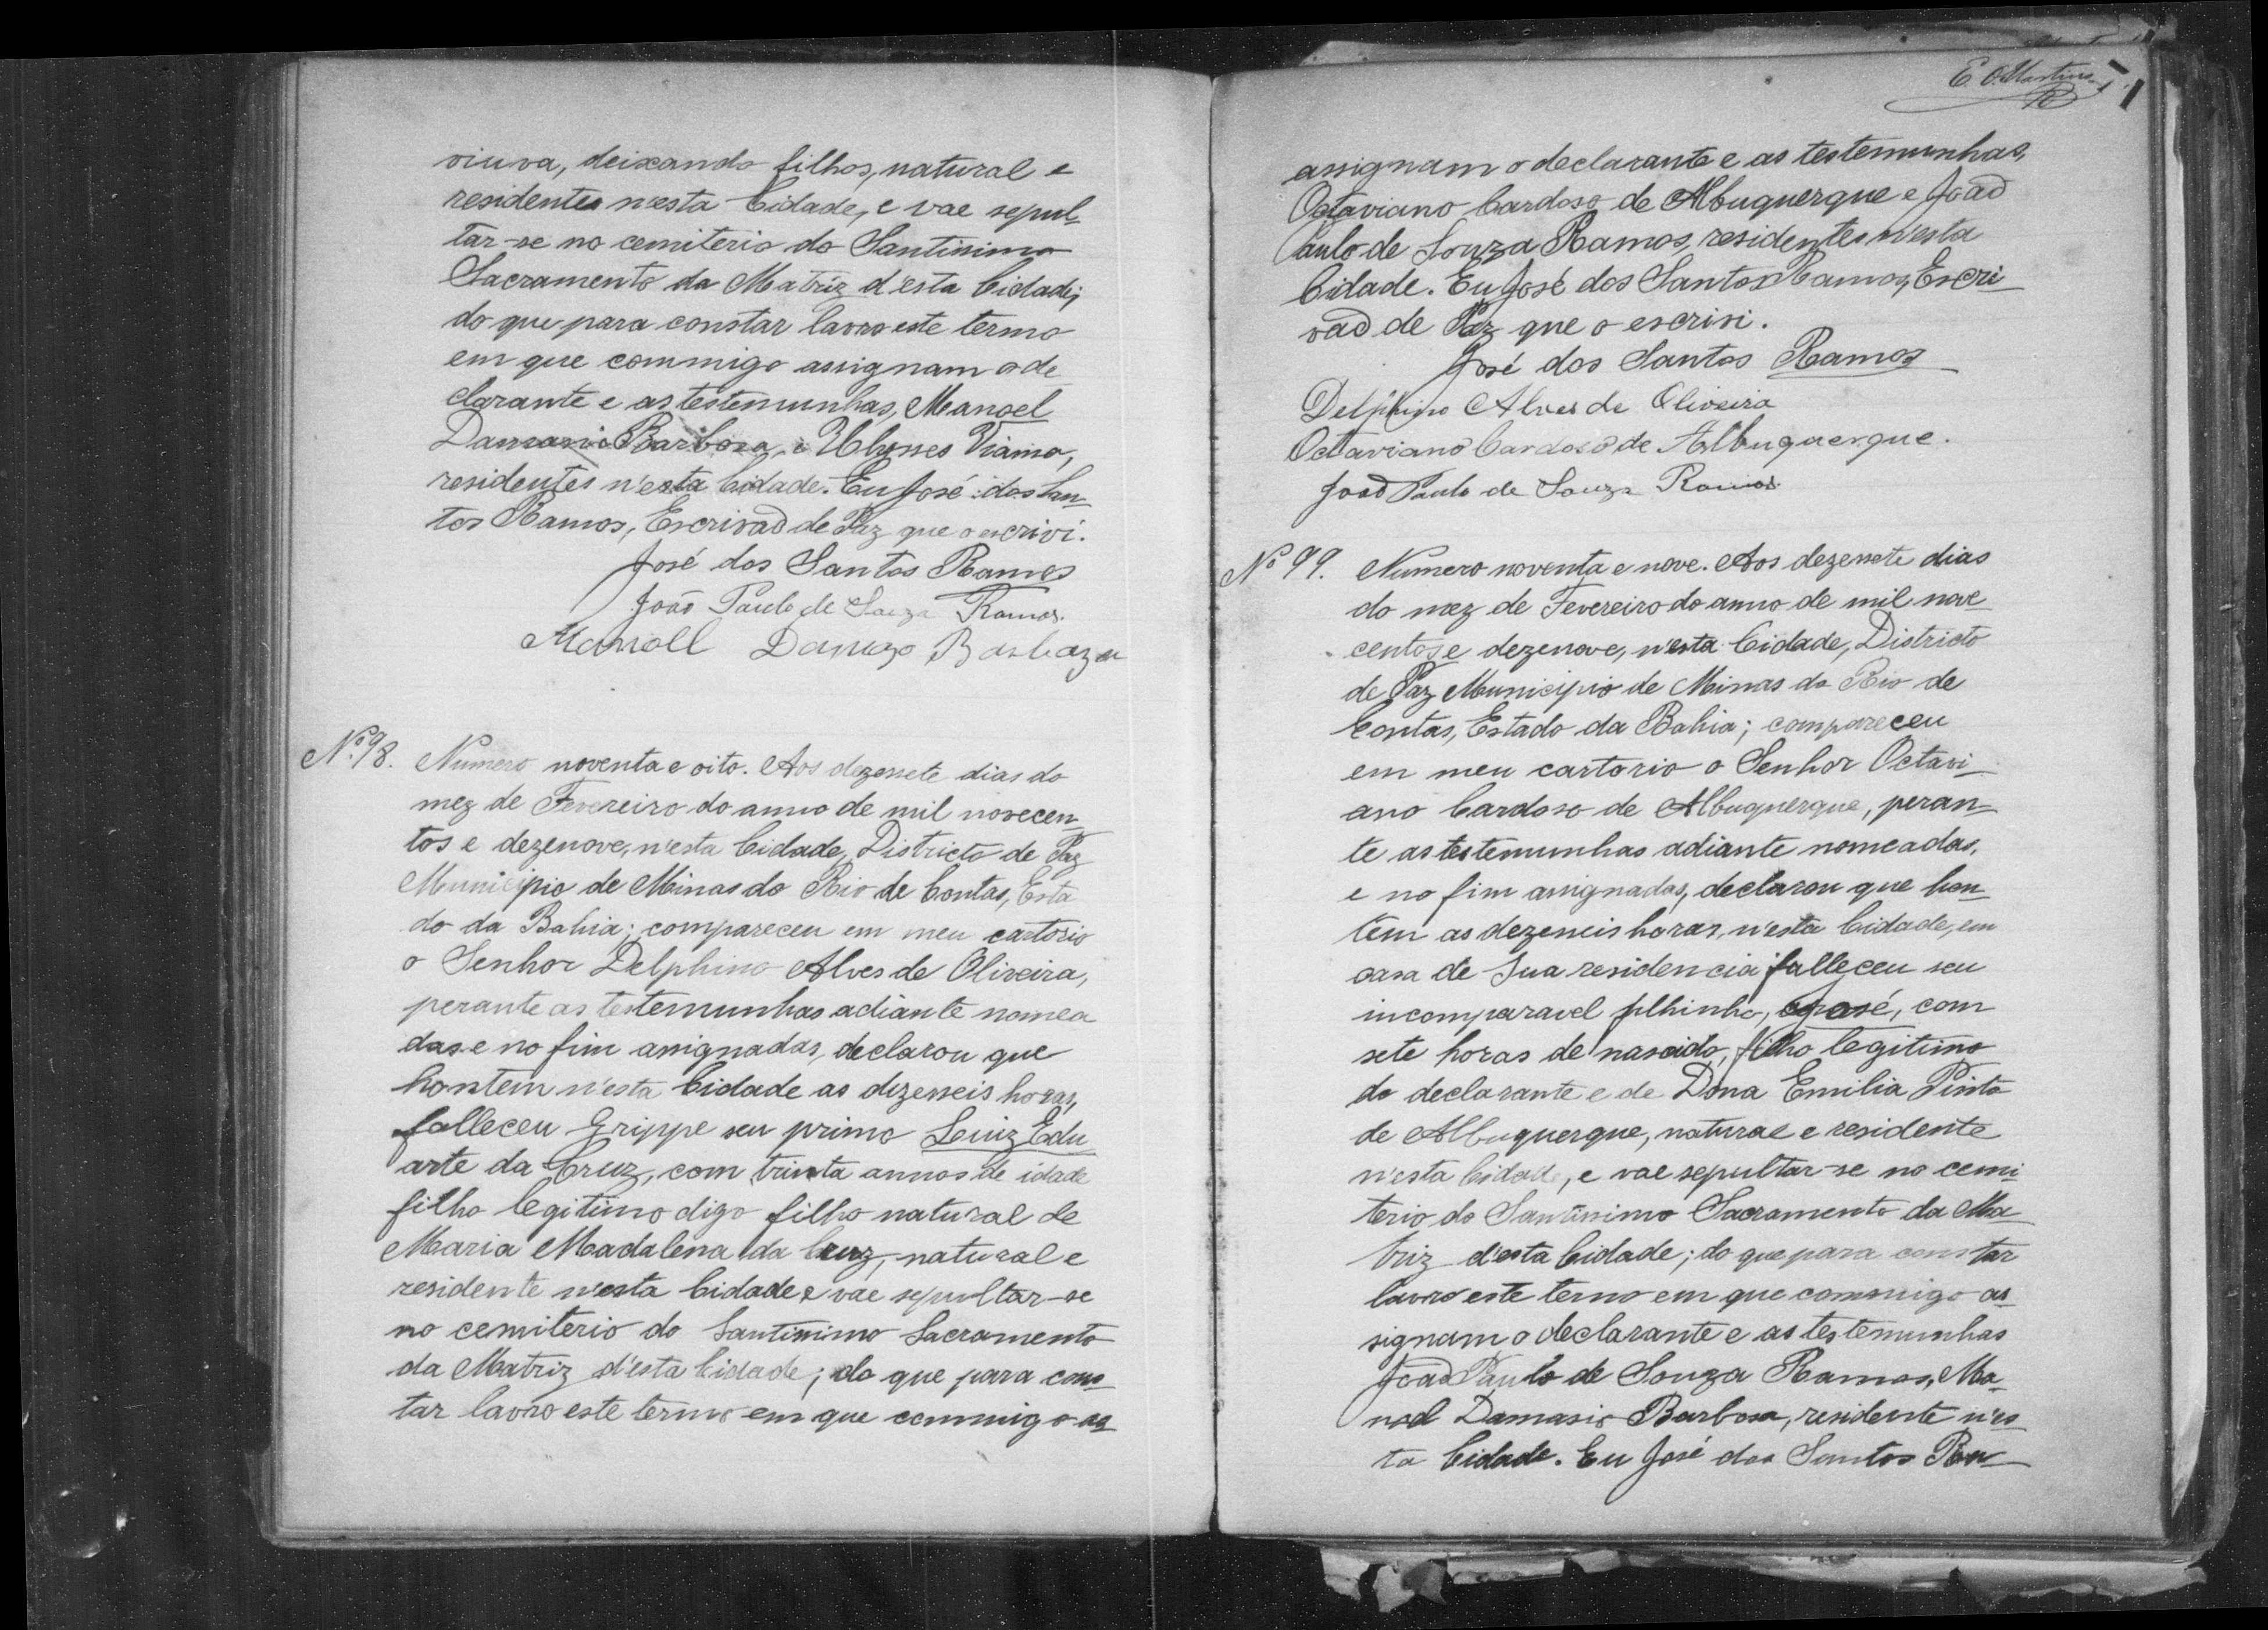 viuva, deixando filhos, natural e
residentes n'esta Cidade, e vae sepul-
tar-se no cemiterio do Santissimo
Sacramento da Matriz d'esta Cidade;
do que para constar lavro este termo
em que commigo assignam o de-
clarante e as testemunhas, Manoel
Damasio Barbosa, e Ulysses Vianna,
residentes n'esta Cidade. Eu José dos San-
tos Ramos, Escrivaõ de Paz que o escrivi.
José dos Santos Ramos
João Paulo de Souza Ramos.
Manoll Damazo Barbaza
Nº 98. Numero noventa e oito. Aos dezessete dias do
mez de Fevereiro do anno de mil novecen-
tos e dezenove, n'esta Cidade, Districto de Paz
Municipio de Minas do Rio de Contas, Esta
do da Bahia; compareceu em meu cartorio
o Senhor Delphino Alves de Oliveira,
perante as testemunhas adiante nomea
das e no fim assignadas, declarou que
hontem n'esta Cidade as dezesseis horas,
falleceu Grippe seu primo Luiz Edu-
arte da Cruz, com trinta annos de idade
filho legitimo digo filho natural de
Maria Madalena da Cruz, natural e
residente n'esta Cidade e vae sepultar-se
no cemiterio do Santissimo Sacramento
da Matriz d'esta Cidade; do que para cons-
tar lavro este termo em que commigo as-
E. O. Martins
assignam o declarante e as testemunhas,
Octaviano Cardoso de Albuquerque e Joaõ
Paulo de Souza Ramos, residentes n'esta
Cidade. Eu José dos Santos Ramos, Escri-
vaõ de Paz que o escrivi.
José dos Santos Ramos
Delphino Alves de Oliveira
Octaviano Cardoso de Albuquerque.
Joaõ Paulo de Souza Ramos.
Nº 99. Numero noventa e nove. Aos dezessete dias
do mez de Fevereiro do anno de mil nove-
centos e dezenove, n'esta Cidade, Districto
de Paz Municipio de Minas do Rio de
Contas, Estado da Bahia; compareceu
em meu cartorio o Senhor Octavi-
ano Cardoso de Albuquerque, peran-
te as testemunhas adiante nomeadas,
e no fim assignadas, declarou que hon-
tem as dezesseis horas, n'esta Cidade, em
casa de sua residencia falleceu seu
incomparavel filhinho, José, com
sete horas de nascido, filho legitimo
do declarante e de Dona Emilia Pinto
de Albuquerque, natural e residente
n'esta Cidade, e vae sepultar-se no cemi-
terio do Santissimo Sacramento da Ma-
triz d'esta Cidade; do que para constar
lavro este termo em que commigo as-
signam o declarante e as testemunhas
Joaõ Paulo de Souza Ramos, Ma-
noel Damasio Barbosa, residente n'es-
ta Cidade. Eu José dos Santos Ra-